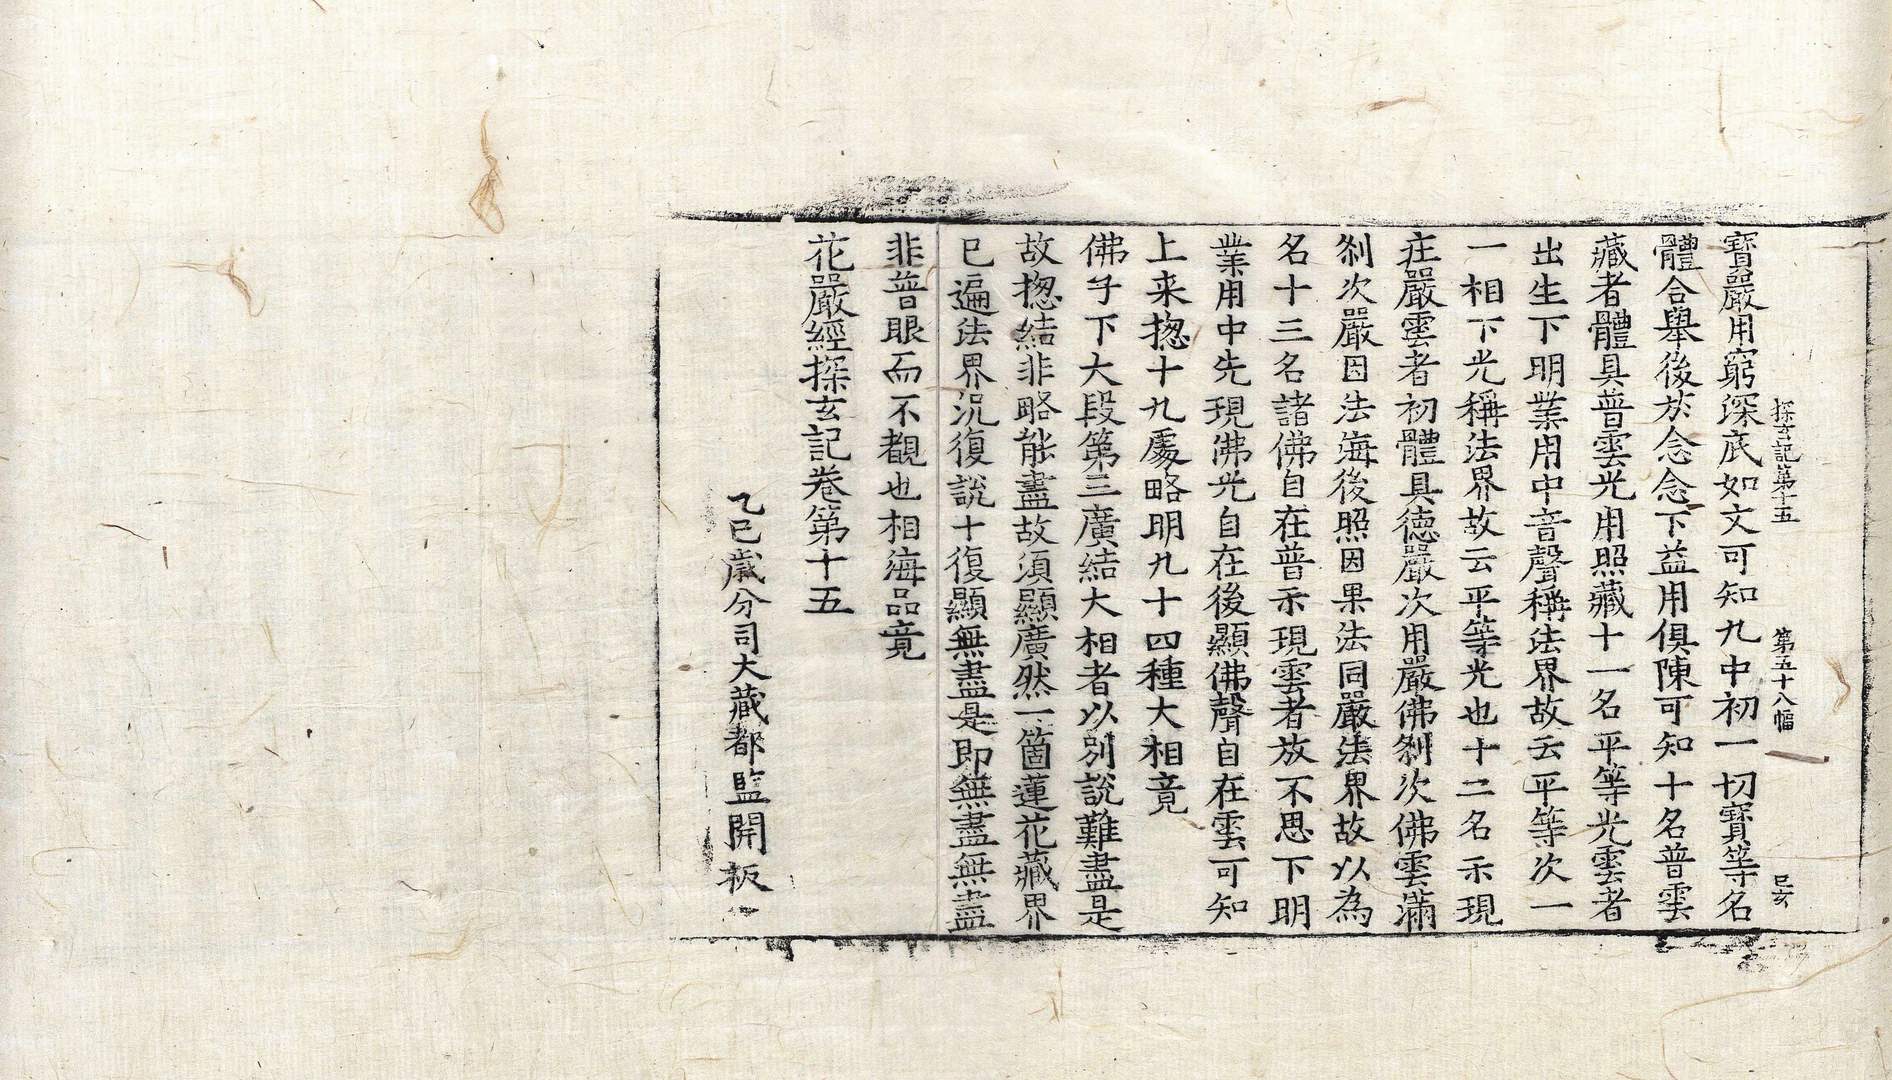 探玄記第十五　第五十八幅　巳亥
寶嚴用窮深底如文可知九中初一切寶等名
體合舉後於念念下益用俱陳可知十名普雲
藏者體具普雲光用照藏十一名平等光雲者
出生下明業用中音聲稱法界故云平等次一
一相下光稱法界故云平等光也十二名示現
庄嚴雲者初體具德嚴次用嚴佛刹次佛雲滿
刹次嚴因法海後照因果法同嚴法界故以為
名十三名諸佛自在普示現雲者放不思下明
業用中先現佛光自在後顯佛聲自在雲可知
上来揔十九處略明九十四種大相竟
佛子下大段第三廣結大相者以別說難盡是
故揔結非略能盡故須顯廣然一箇蓮花藏界
已遍法界況復說十復顯無盡是即無盡無盡
非普眼而不覩也相海品竟
花嚴經探玄記卷第十五
乙巳歲分司大藏都監開板